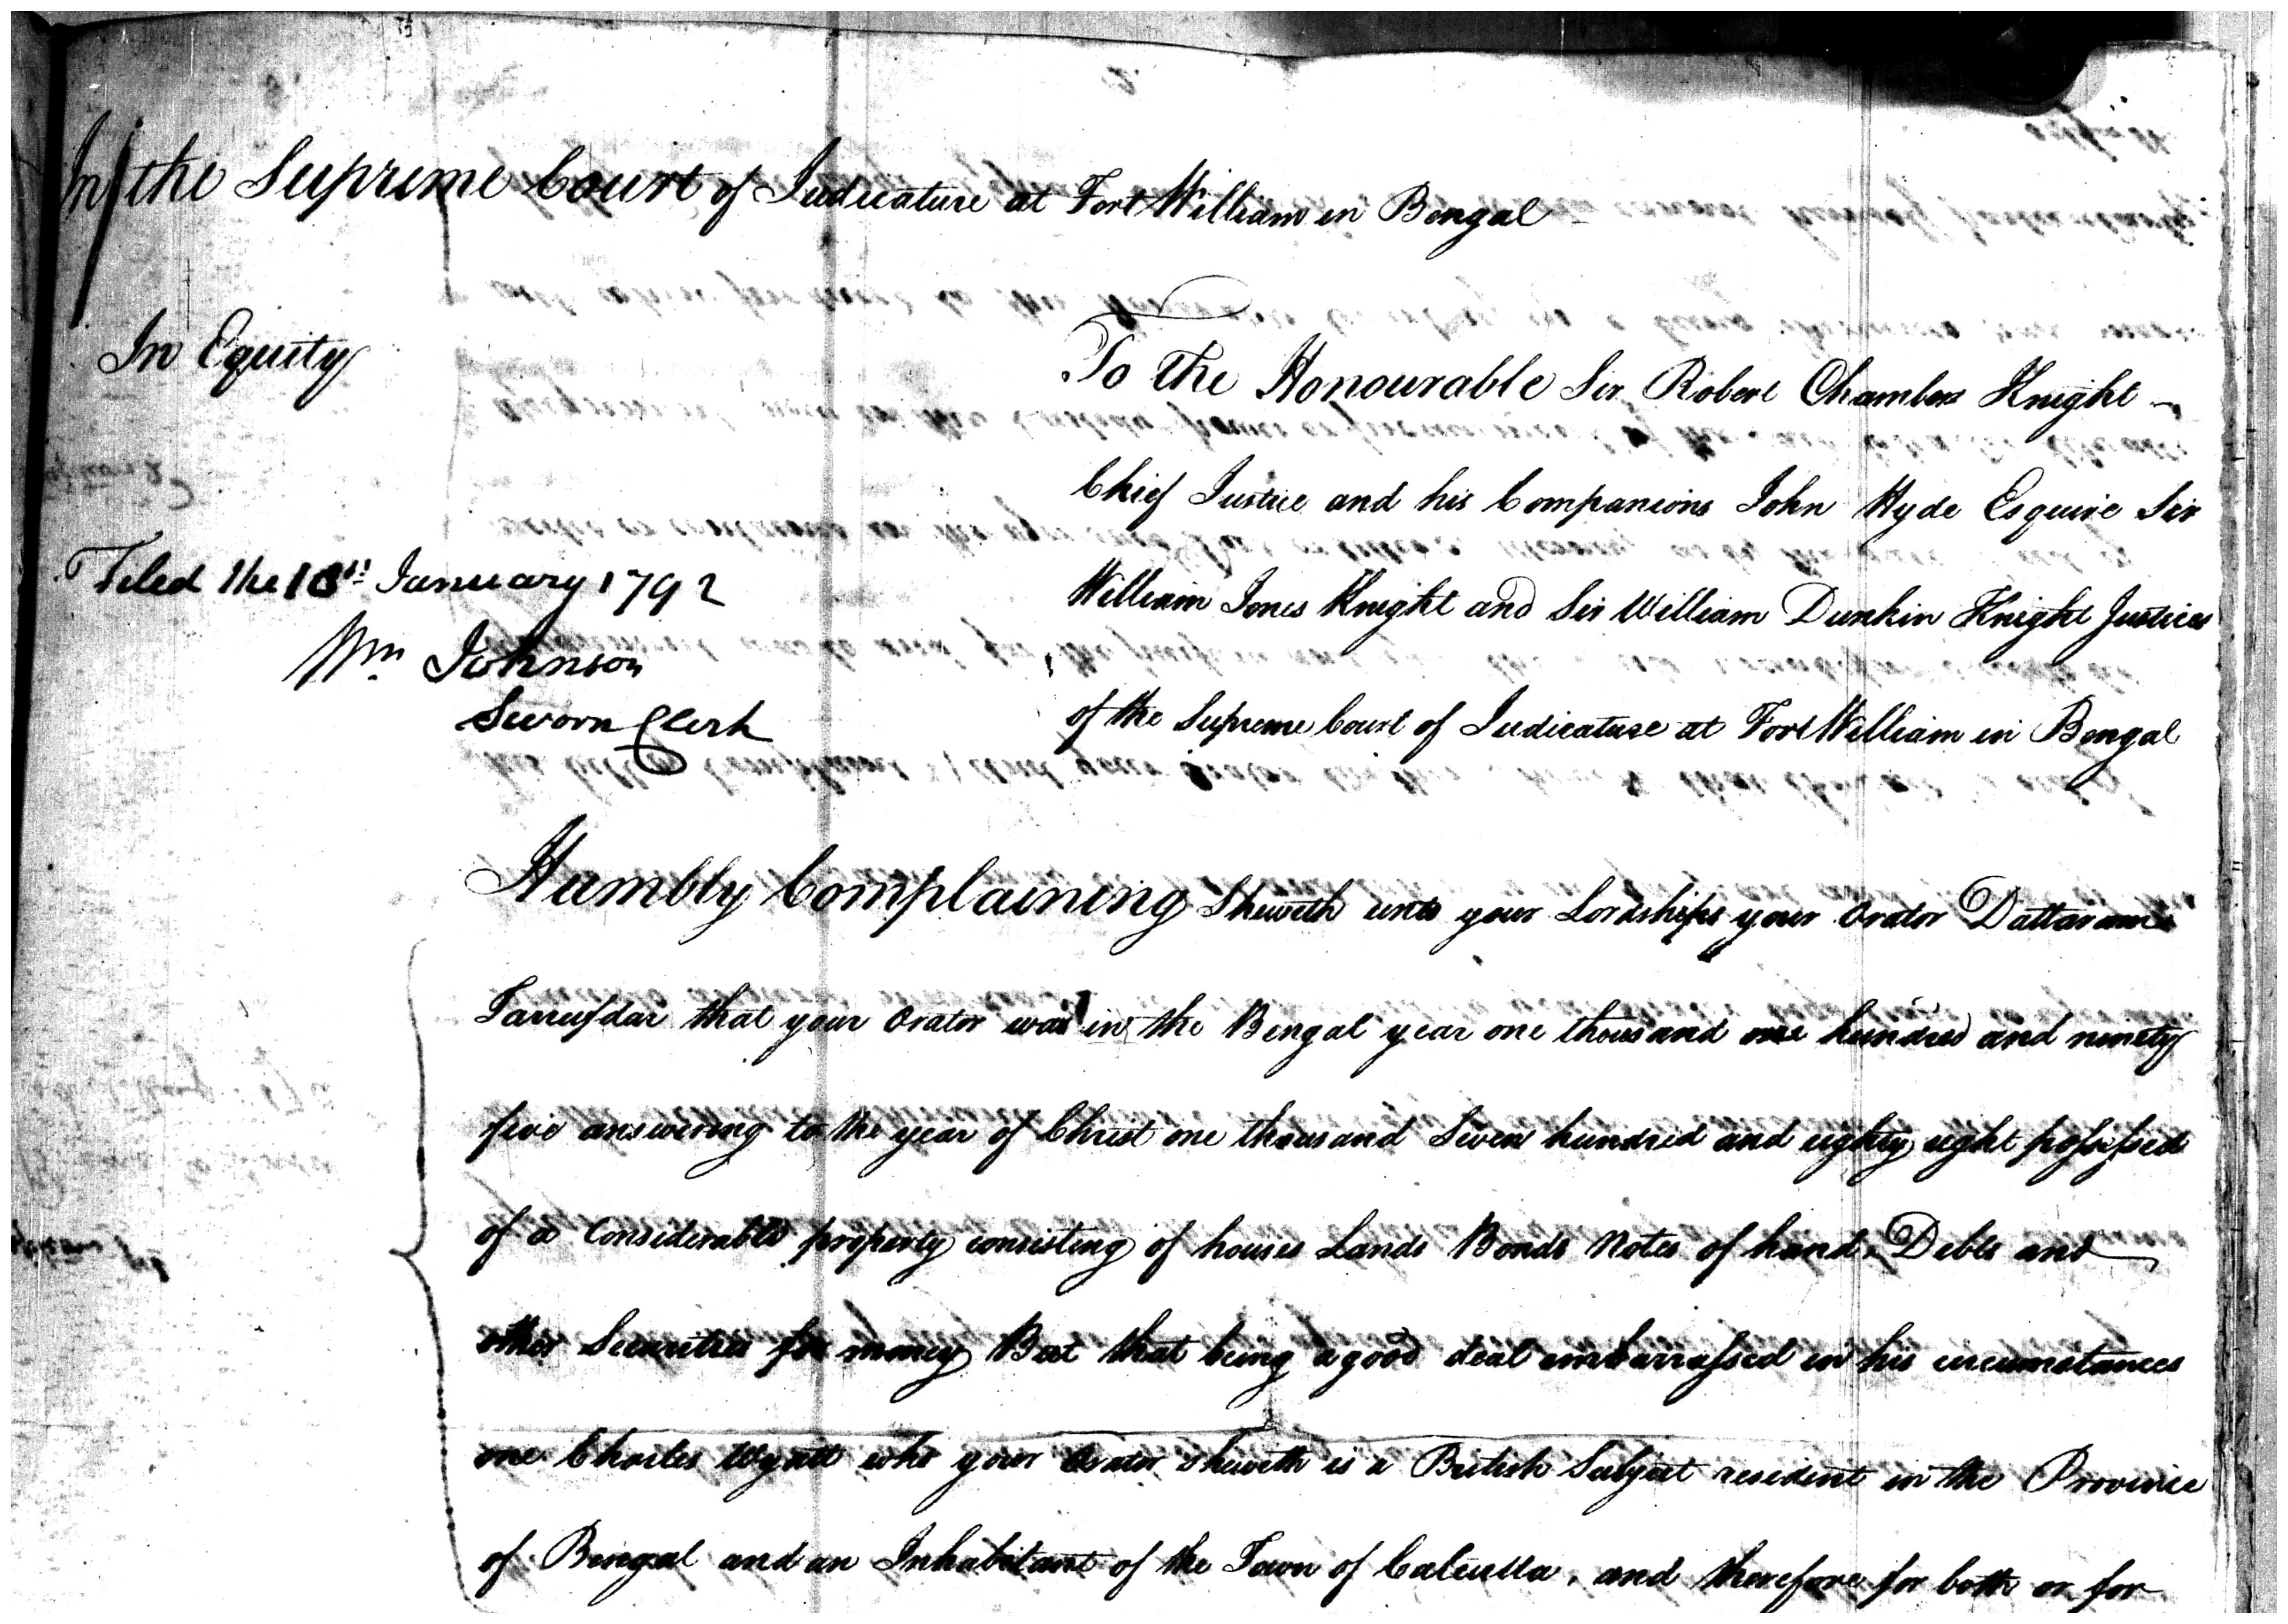 In the Supreme Court of Judicature at Fort William in Bengal
In Equity
To the Honourable Sir Robert Chambers Knight
Chief Justice and his Companions John Hyde Esquire Sir
Filed the 18th January 1792
William Jones Knight and Sir William Dunkin Knight Justices
Wm Johnson
Sworn Clerk
of the Supreme Court of Judicature at Fort William in Bengal
Humbly Complaining Sheweth unto your Lordships your Orator Dattaram
that your Orator was in the Bengal year one thousand one hundred and ninety
five answering to the year of Christ one thousand Seven hundred and eighty eight possessed
of a Considerable property consisting of houses Lands Bonds Notes of hand Debts and
other Securities for money But that being a good deal embarrassed in his circumstances
one Charles Wyatt who your Orator sheweth is a British Subject resident in the Province
of Bengal and an Inhabitant of the Town of Calcutta, and therefore for both or for